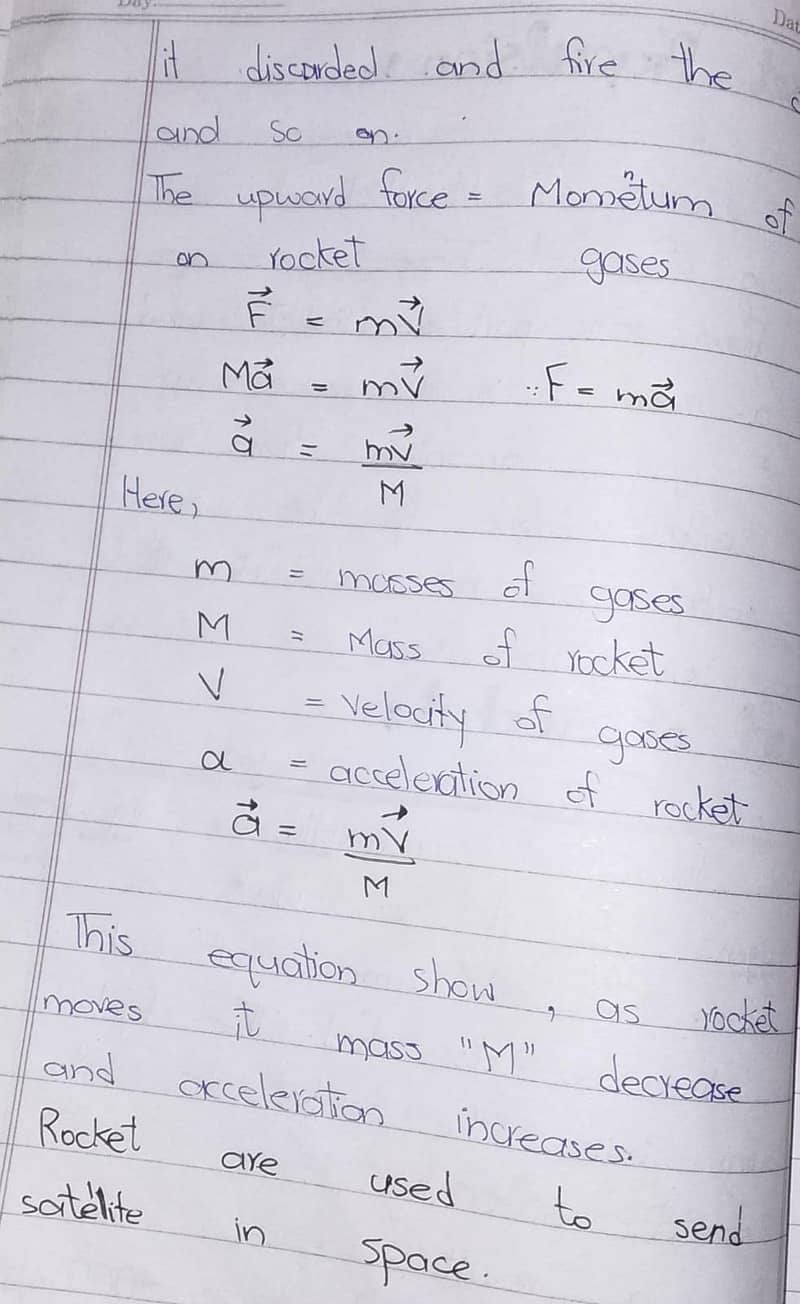 Day:
Dat
it discarded and fire the
and so on.
The upward force = Mometum of
n
on rocket gases
F⃗ = mV⃗
Ma⃗ = mV⃗ ∵ F = ma⃗
a⃗ = mv⃗
M
Here,
m = masses of gases
M = Mass of rocket
V = velocity of gases
a = acceleration of rocket
a⃗ = mV⃗
M
This equation show, as rocket
moves it mass "M" decrease
and acceleration increases.
Rocket are used to send
satelite in space.